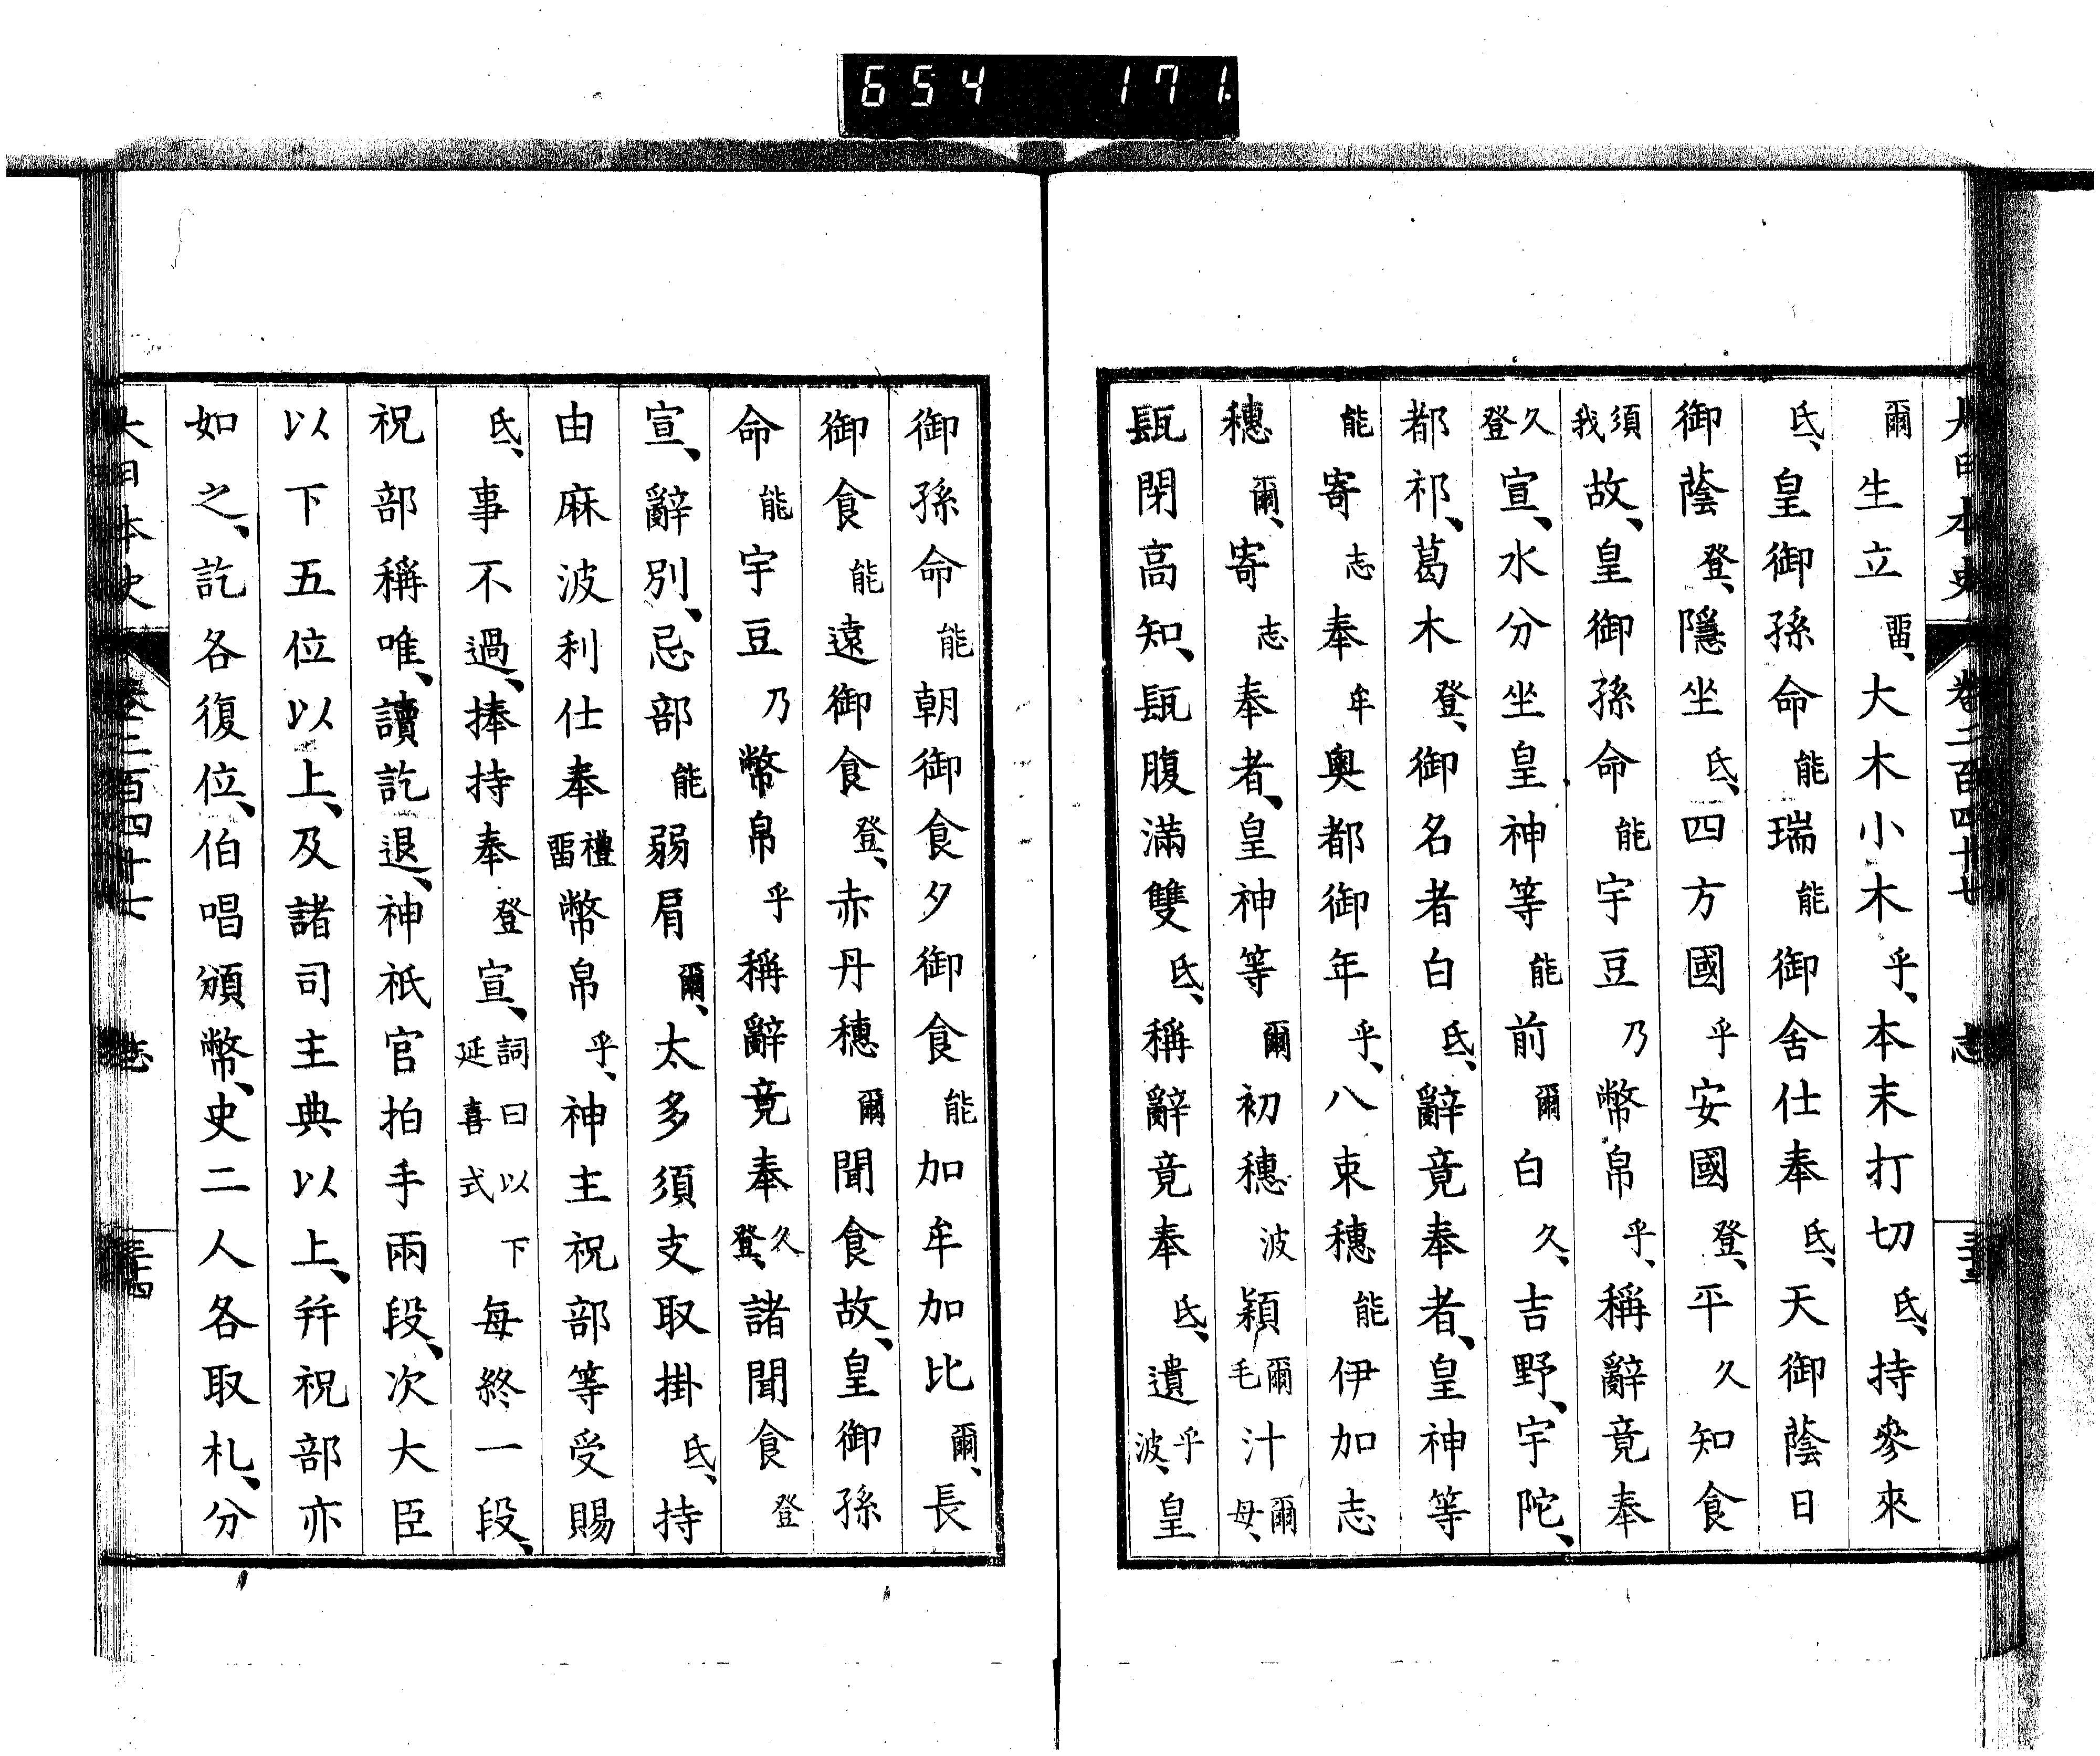 654 171
大日本史 卷二百四十七 志 三十三
爾生立畱、大木小木乎、本末打切氐、持參來
氐、皇御孫命能瑞能御舍仕奉氐、天御蔭日
御蔭登、隱坐氐、四方國乎安國登、平久知食
須我故、皇御孫命能宇豆乃幣帛乎、稱辭竟奉
久登宣、水分坐皇神等能前爾白久、吉野、宇陀、
都祁、葛木登、御名者白氐、辭竟奉者、皇神等
能寄志奉牟奧都御年乎、八束穗能伊加志
穗爾、寄志奉者、皇神等爾初穗波穎爾毛汁爾母、
𤭖閉高知、𤭖腹滿雙氐、稱辭竟奉氐、遺乎波、皇
御孫命能朝御食夕御食能加牟加比爾、長
御食能遠御食登、赤丹穗爾聞食故、皇御孫
命能宇豆乃幣帛乎稱辭竟奉久登、諸聞食登
宣、辭別、忌部能弱肩爾、太多須支取掛氐、持
由麻波利仕奉禮畱幣帛乎、神主祝部等受賜
氐、事不過、捧持奉登宣、詞曰以下延喜式每終一段、
祝部稱唯、讀訖退、神祇官拍手兩段、次大臣
以下五位以上、及諸司主典以上、幷祝部亦
如之、訖各復位、伯唱頒幣、史二人各取札、分
大日本史 卷二百四十七 志 三十四